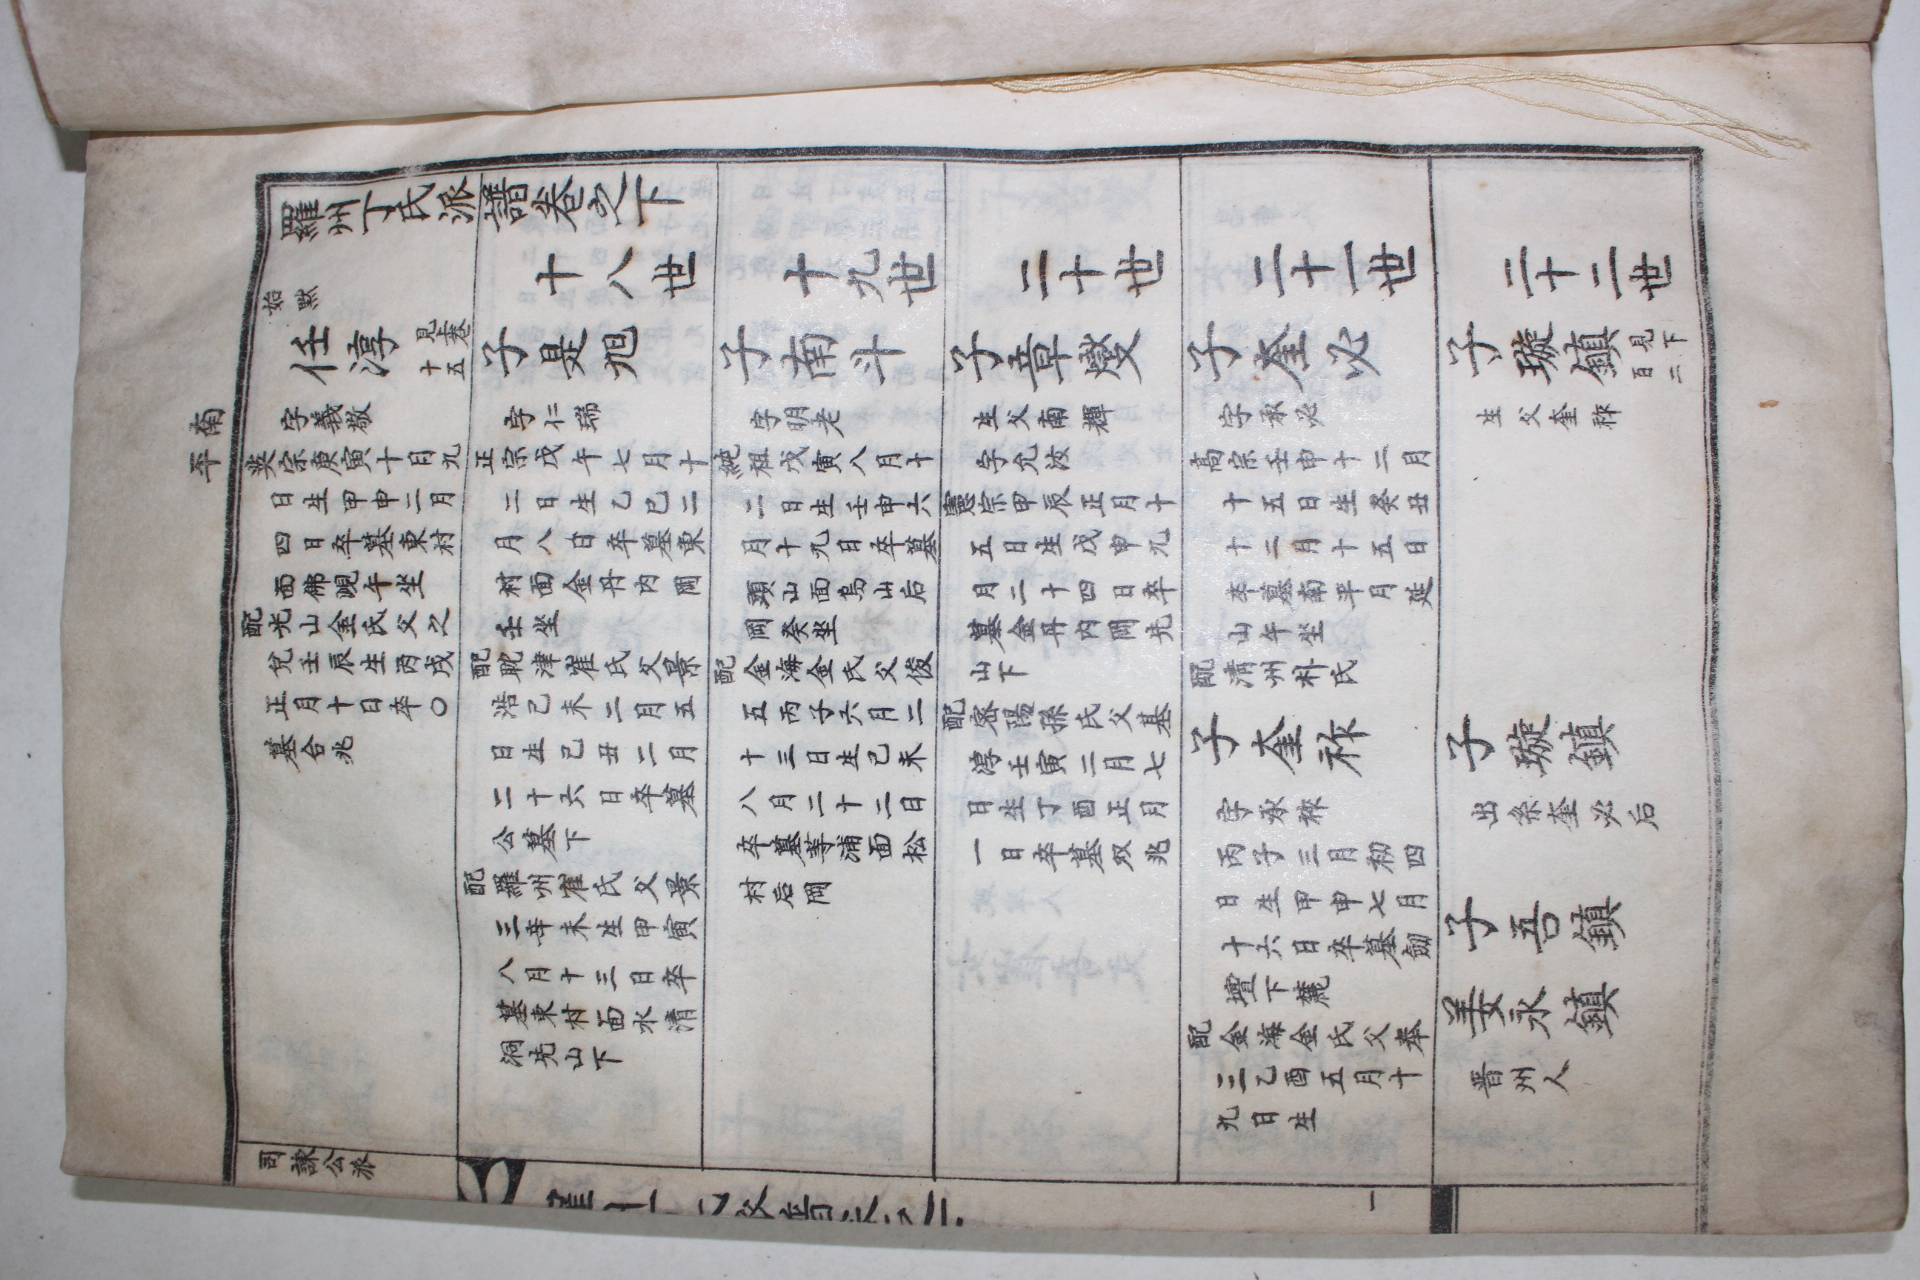 羅州丁氏派譜卷之下
始默
任淳
見卷
十五
字義敬
英宗庚寅十月九
日生甲申二月
四日卒墓東村
面佛峴午坐
配光山金氏父之
兌壬辰生丙戌
正月十日卒〇
墓合兆
南平
十八世
子是旭
字仁瑞
正宗戊午七月十
二日生乙巳二
月八日卒墓東
村面金丹內岡
壬坐
配耽津崔氏父景
浩己未二月五
日生己丑二月
二十六日卒墓
公墓下
配羅州崔氏父景
三辛未生甲寅
八月十三日卒
墓東村面水清
洞先山下
十九世
子南斗
字明老
純祖戊寅八月十
二日生壬申六
月十九日卒墓
頭山面烏山后
岡癸坐
配金海金氏父俊
五丙子六月二
十三日生己未
八月二十二日
卒墓等浦面松
村后岡
二十世
子章燮
生父南輝
字允汝
憲宗甲辰正月十
五日生戊申九
月二十四日卒
墓金丹內岡先
山下
配密陽孫氏父基
淳壬寅二月七
日生丁酉正月
一日卒墓双兆
二十一世
子奎必
字承必
高宗壬申十二月
十五日生癸丑
十二月十五日
卒墓南平月延
山午坐
配清州朴氏
子奎祚
字承祚
丙子三月初四
日生甲申七月
十六日卒墓劒
壇下麓
配金海金氏父奉
三乙酉五月十
九日生
二十二世
子璇鎮
見下
百二
生父奎祚
子璇鎮
出系奎必后
子吾鎮
姜永鎮
晋州人
司諫公派
一